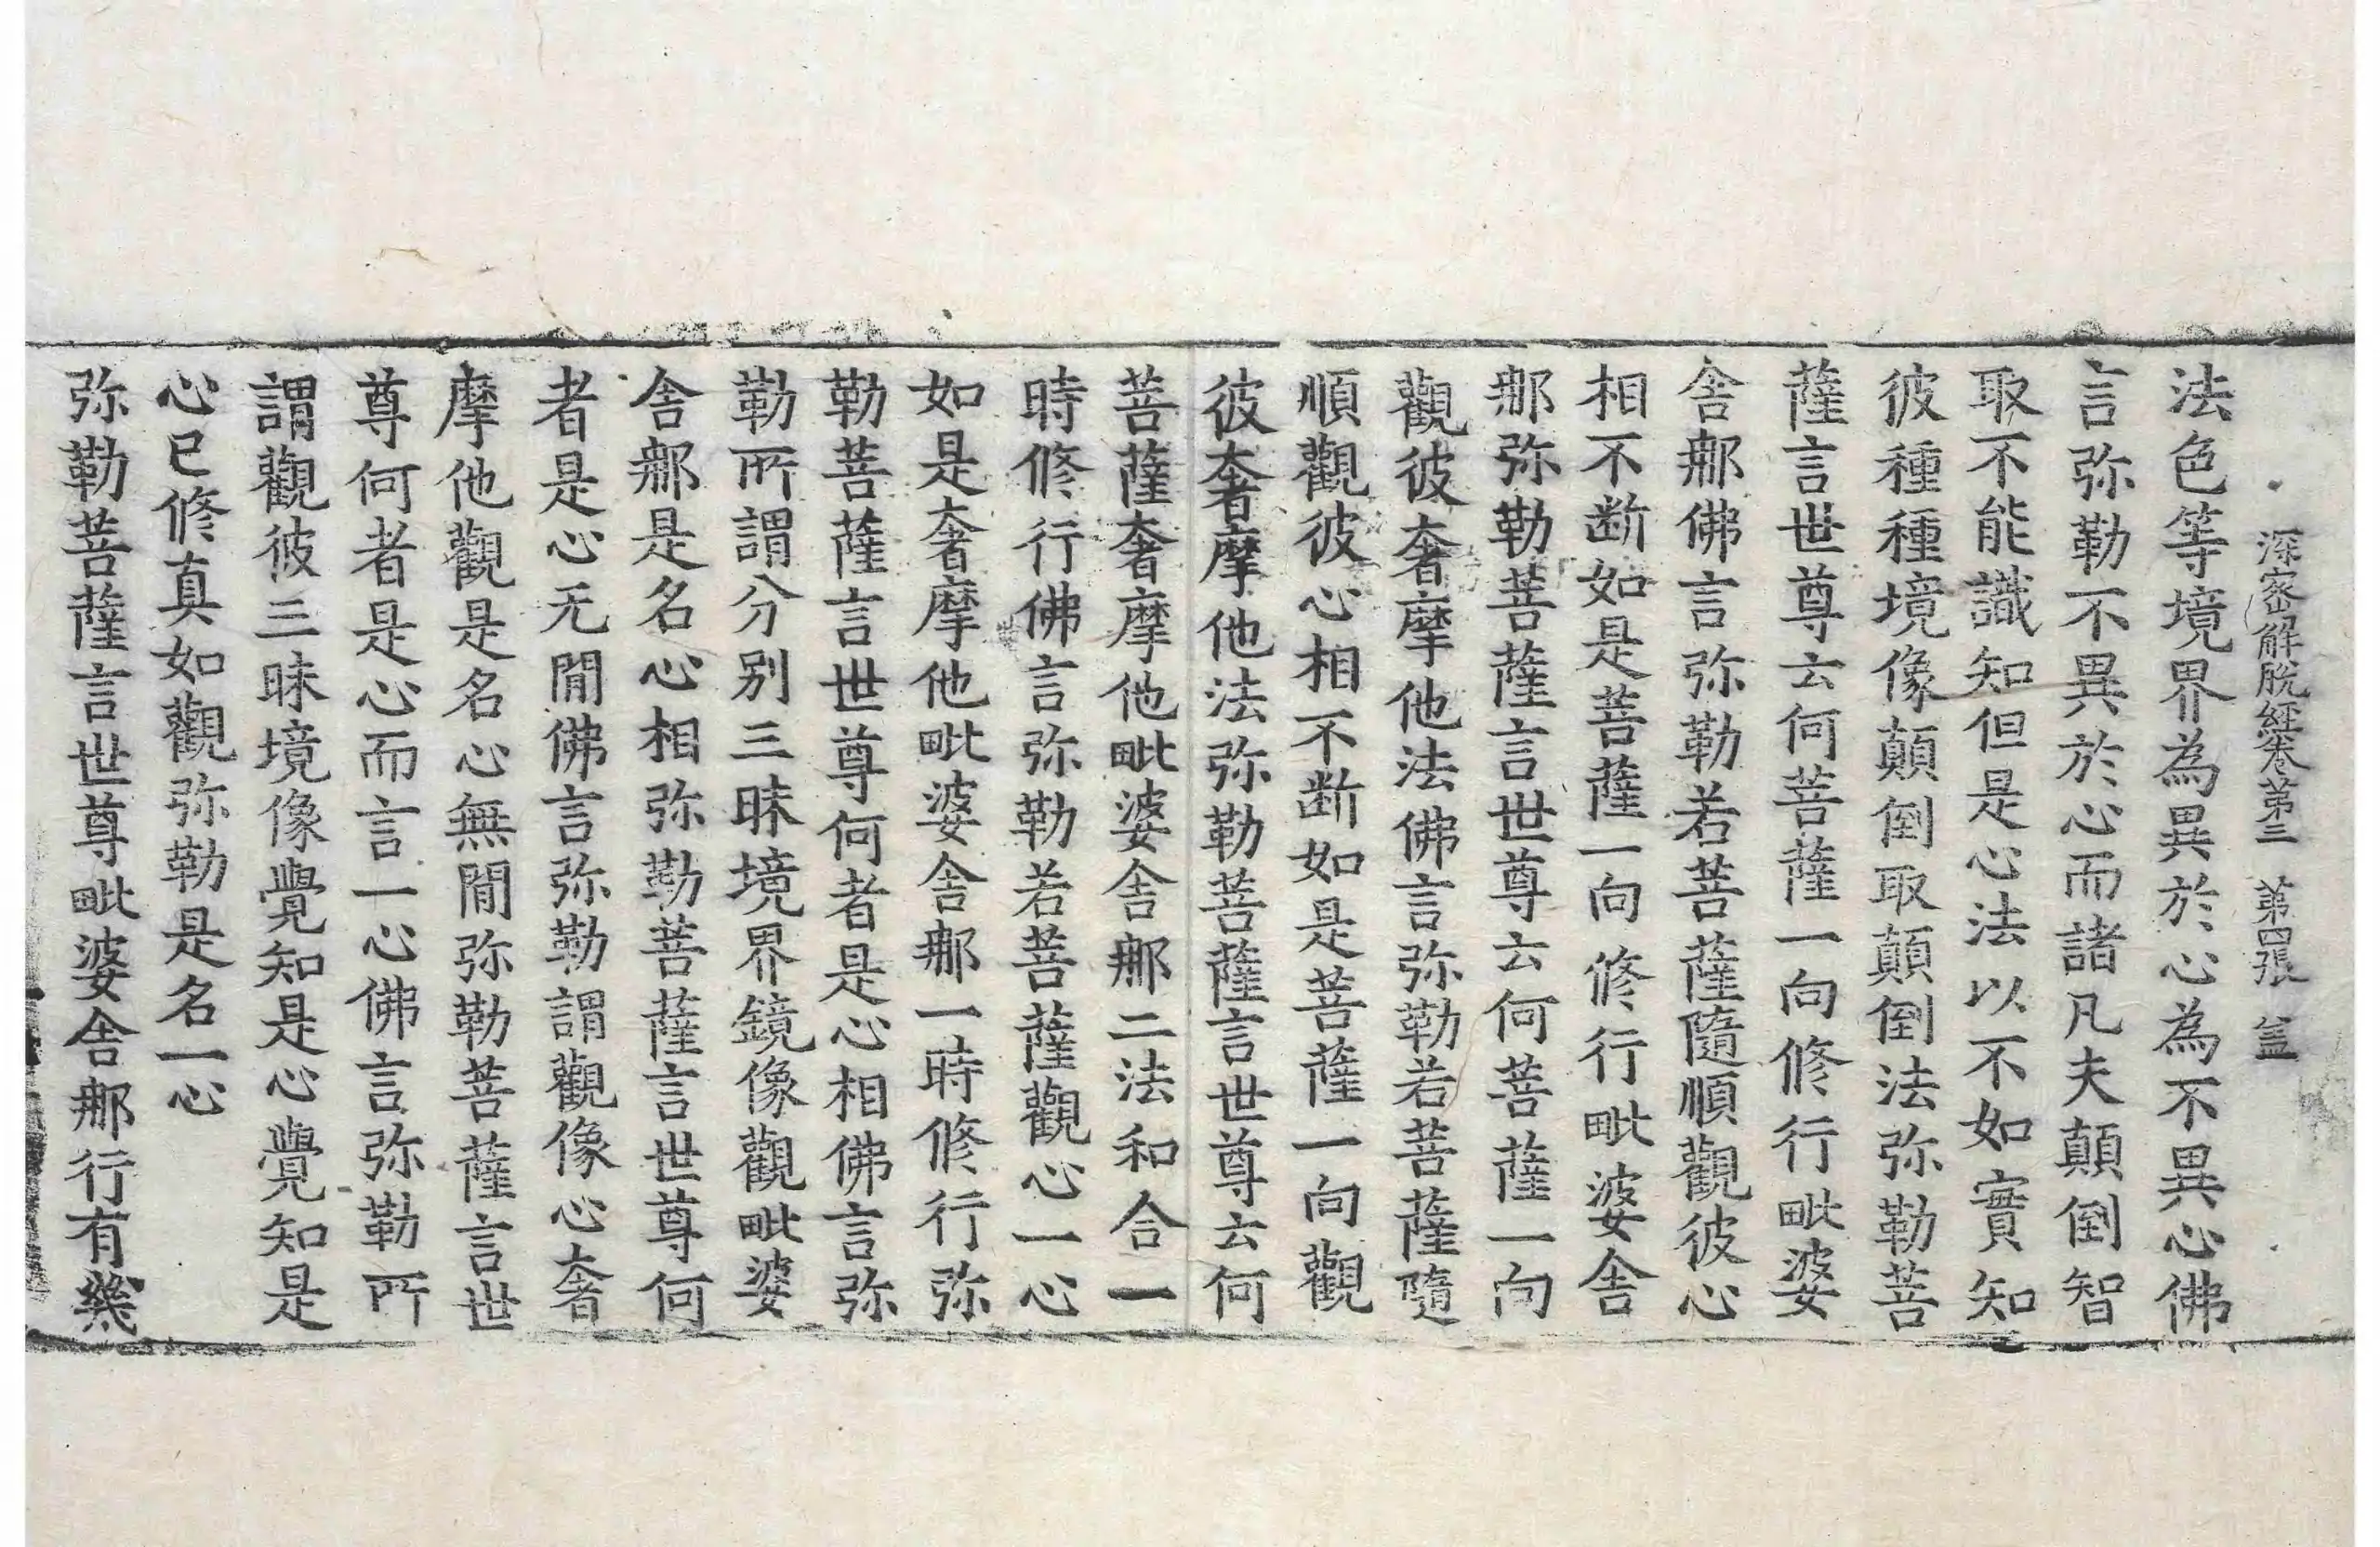 深密解脫經卷第三　第四張　盖
法色等境界為異於心為不異心佛
言弥勒不異於心而諸凡夫顛倒智
取不能識知但是心法以不如實知
彼種種境像顛倒取顛倒法弥勒菩
薩言世尊云何菩薩一向修行毗婆
舍那佛言弥勒若菩薩隨順觀彼心
相不断如是菩薩一向修行毗婆舍
那弥勒菩薩言世尊云何菩薩一向
觀彼奢摩他法佛言弥勒若菩薩隨
順觀彼心相不断如是菩薩一向觀
彼奢摩他法弥勒菩薩言世尊云何
菩薩奢摩他毗婆舍那二法和合一
時修行佛言弥勒若菩薩觀心一心
如是奢摩他毗婆舍那一時修行弥
勒菩薩言世尊何者是心相佛言弥
勒所謂分別三昧境界鏡像觀毗婆
舍那是名心相弥勒菩薩言世尊何
者是心无閒佛言弥勒謂觀像心奢
摩他觀是名心無閒弥勒菩薩言世
尊何者是心而言一心佛言弥勒所
謂觀彼三昧境像覺知是心覺知是
心已修真如觀弥勒是名一心
弥勒菩薩言世尊毗婆舍那行有幾